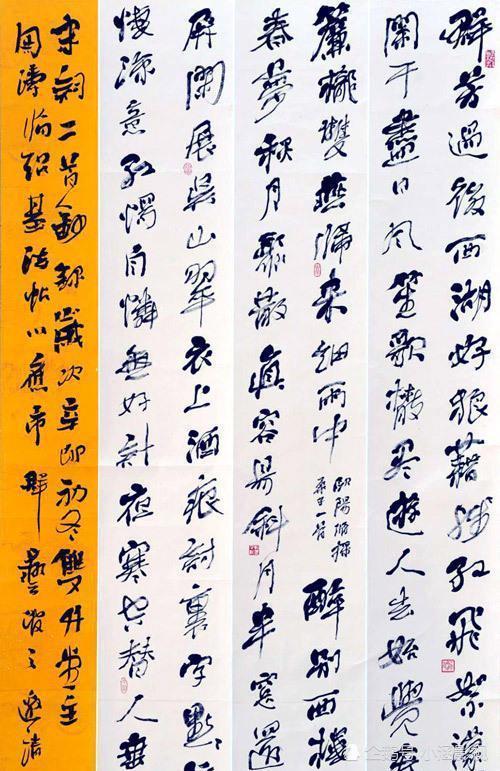 群芳過後西湖好狼藉殘紅飛絮濛
闌干盡日風笙歌散盡遊人去始覺
簾櫳雙燕歸來細雨中
歐陽修採
桑子一首
醉別西樓
春夢秋月聚散真容易斜月半窗還
屏閑展吳山翠衣上酒痕詩裏字點點
淒涼意紅燭自憐無好計夜寒空替人垂
宋詞二首敬錄歲次辛卯初冬雙井堂主
周濤臨紹基法帖以應市群藝館之邀請
企鹅号